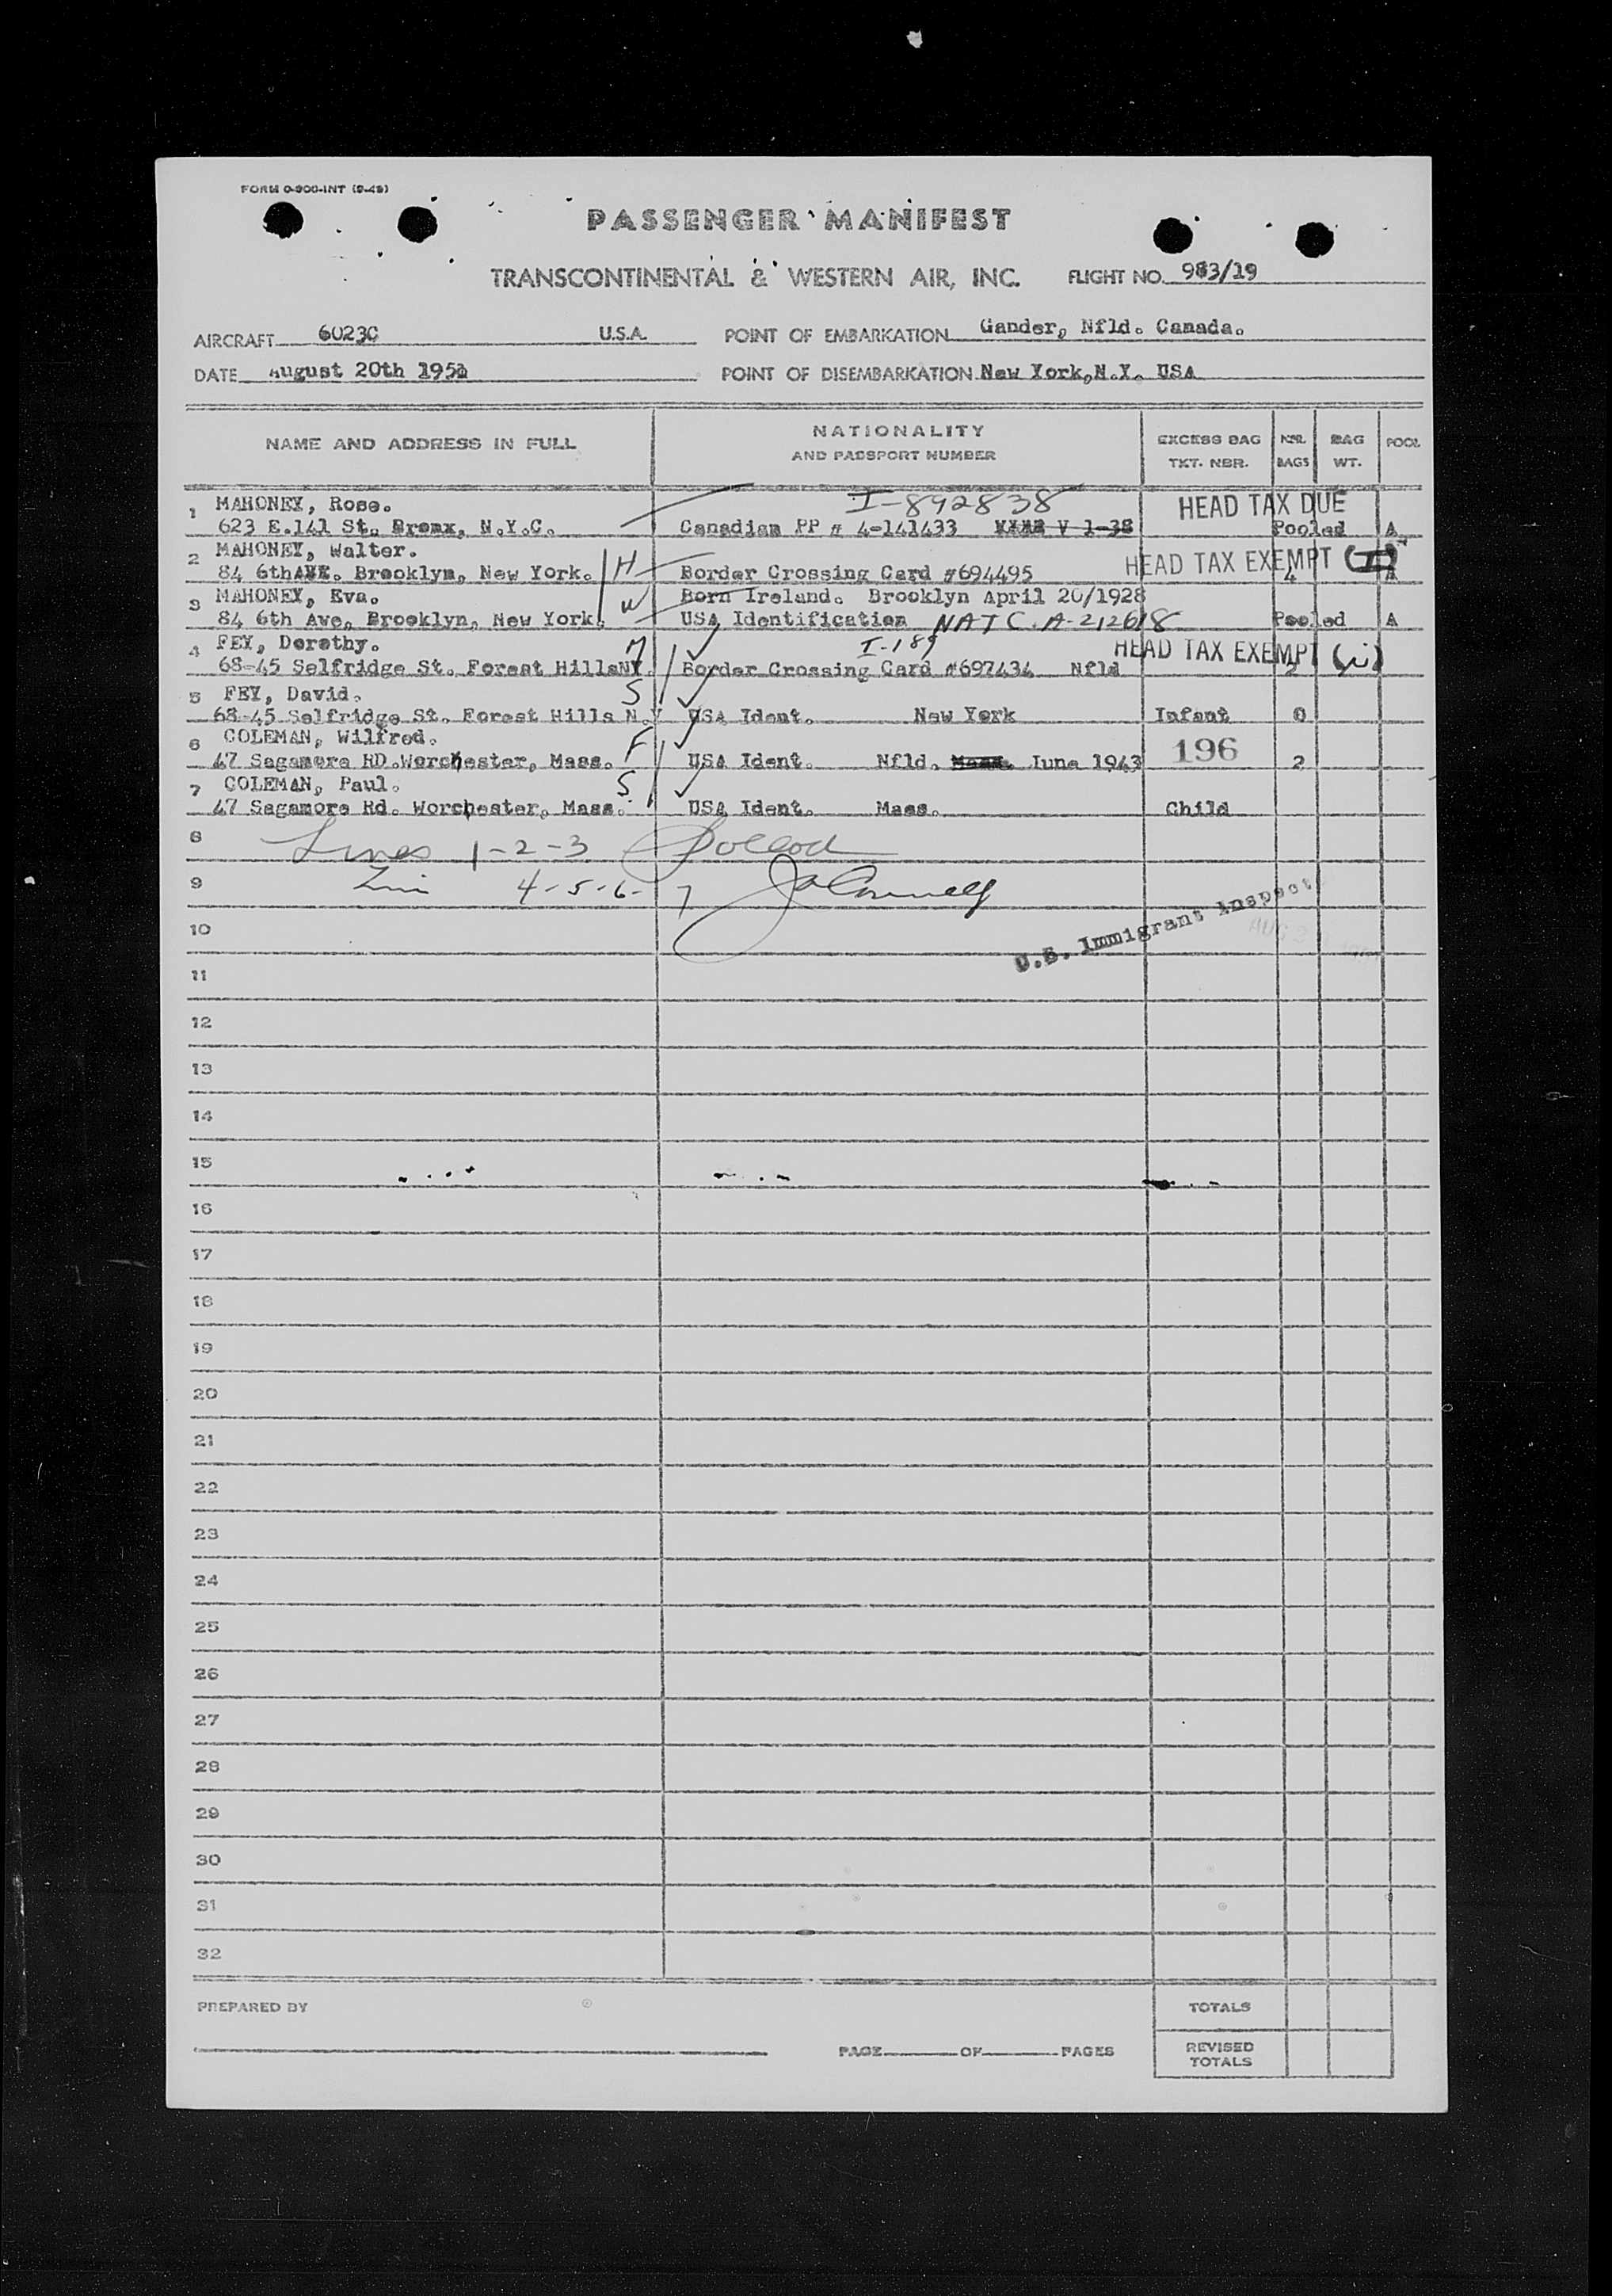 FORM O-900-INT (9-48)
PASSENGER MANIFEST
TRANSCONTINENTAL & WESTERN AIR, INC. FLIGHT NO. 983/19
AIRCRAFT 6023C U.S.A. POINT OF EMBARKATION Gander, Nfld. Canada.
DATE August 20th 1951 POINT OF DISEMBARKATION New York,N.Y. USA
NAME AND ADDRESS IN FULL NATIONALITY AND PASSPORT NUMBER EXCESS BAG TKT. NBR. NBR. BAGS BAG WT. POOL
1 MAHONEY, Rose. I-892838 HEAD TAX DUE
623 E.141 St. Bronx, N.Y.C. Canadian PP # 4-141433 V 1-38 Pooled A
2 MAHONEY, Walter. HEAD TAX EXEMPT
84 6thAVE. Brooklyn, New York. H Border Crossing Card #694495 4 A
3 MAHONEY, Eva. W Born Ireland. Brooklyn April 20/1928
84 6th Ave, Brooklyn, New York. USA Identification NATC.A-212618 Pooled A
4 FEY, Dorothy. M I-189 HEAD TAX EXEMPT (i)
68-45 Selfridge St. Forest HillsNY. Border Crossing Card #697434 Nfld 2
5 FEY, David. S
68-45 Selfridge St. Forest Hills N.Y USA Ident. New York Infant 0
6 COLEMAN, Wilfred. F 196
47 Sagamore RD.Worchester, Mass. USA Ident. Nfld. Mass. June 1943 2
7 COLEMAN, Paul. S
47 Sagamore Rd. Worchester, Mass. USA Ident. Mass. Child
8 Lines 1-2-3
9 4-5-6-7
U.S. Immigrant Inspector
10
11
12
13
14
15
16
17
18
19
20
21
22
23
24
25
26
27
28
29
30
31
32
PREPARED BY TOTALS
PAGE OF PAGES REVISED TOTALS